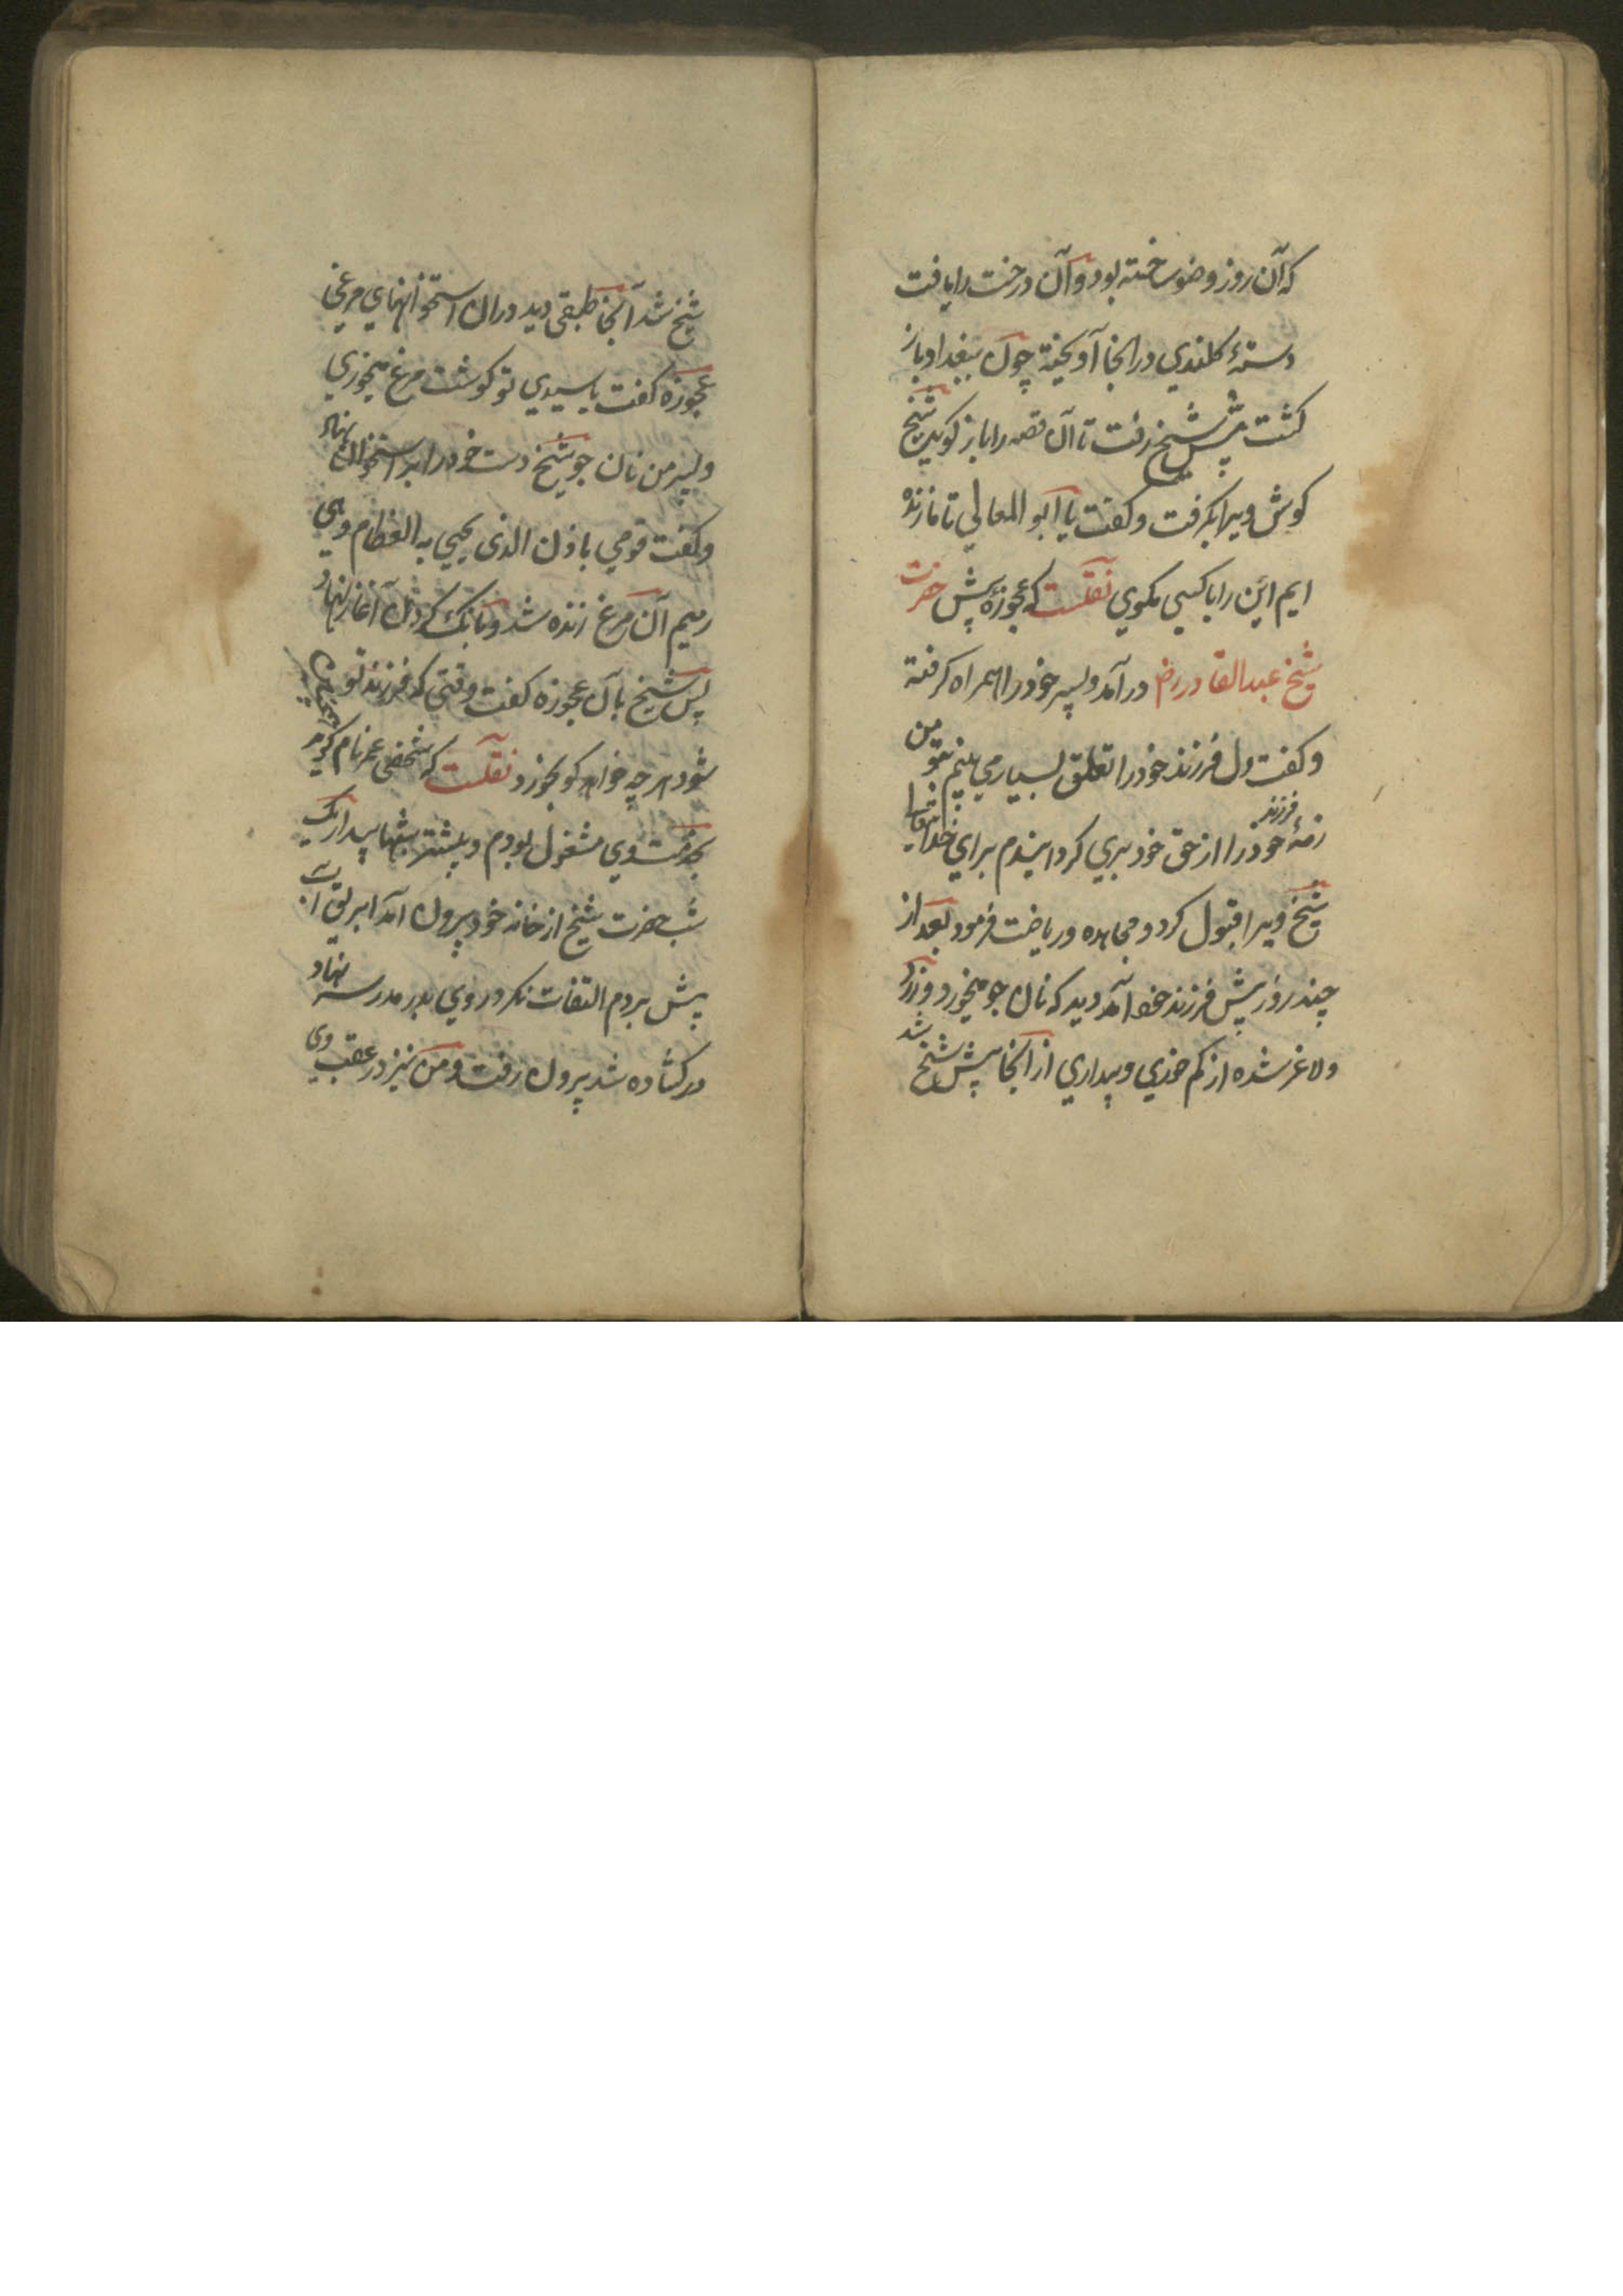 که آن روز وضو ساخته بود و آن درخت را یافت
دستهٔ کلندی در انجا آویخته چون ببغداد باز
کشت پیش شیخ رفت تا آن قصه را باز کوید شیخ
کوش ویرا بکرفت و کفت یا ابو المعالی تا ما زنده
ایم این را با کسی مکوی نقلست که عجوزهٔ پیش حضرت
شیخ عبد القادر رض در آمد و پسر خود را همراه کرفته
و کفت دل فرزند خود را تعلق بسیار می بینم بتو من
ذمهٔ فرزند خود را از حق خود بری کردانیدم برای خدایتعالی
شیخ ویرا قبول کرد و مجاهده و ریاضت فرمود بعد از
چند روز پیش فرزند خود آمد دید که نان جو میخورد و زرد
و لاغر شده از کم خوری و بیداری از انجا پیش شیخ شد
شیخ شد آنجا طبقی دید در ان استخوانهای مرغی
عجوزه کفت یا سیدی تو کوشت مرغ میخوری
و پسر من نان جو شیخ دست خود را بر استخوان نهاد
و کفت قومی باذن الذی یحیی به العظام و هی
رمیم آن مرغ زنده شد و بانک کردن آغاز نهاد
پس شیخ بآن عجوزه کفت وقتی که فرزند تو چنین
شود هر چه خواهد کو بخورد نقلست که شخصی عمر نام کوید
بخدمت وی مشغول بودم و بیشتر شبها بیدار یک
شب حضرت شیخ از خانه خود بیرون آمد ابریق آب
پیش بردم التفات نکرد روی بدر مدرسه نهاد
در کشاده شد بیرون رفت و من نیز در عقب وی